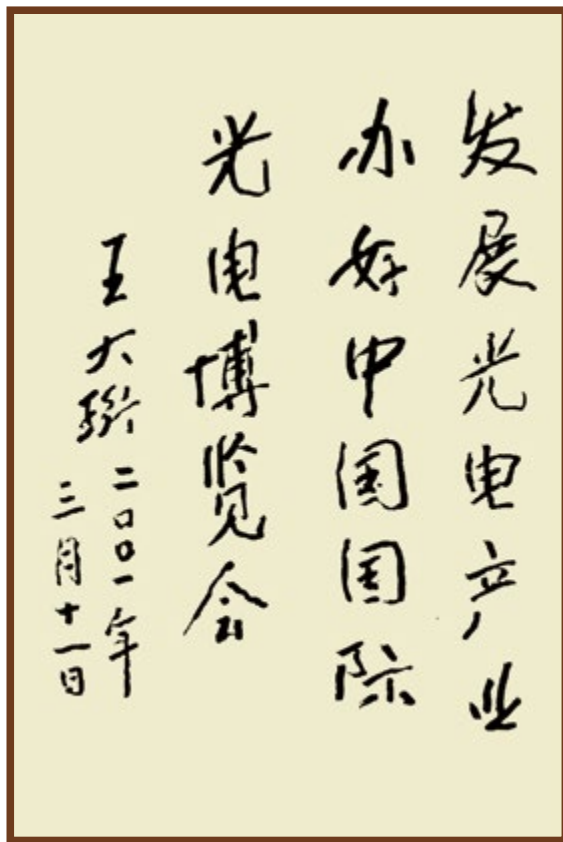 发展光电产业
办好中国国际
光电博览会
王大珩
二〇〇一年
三月十一日